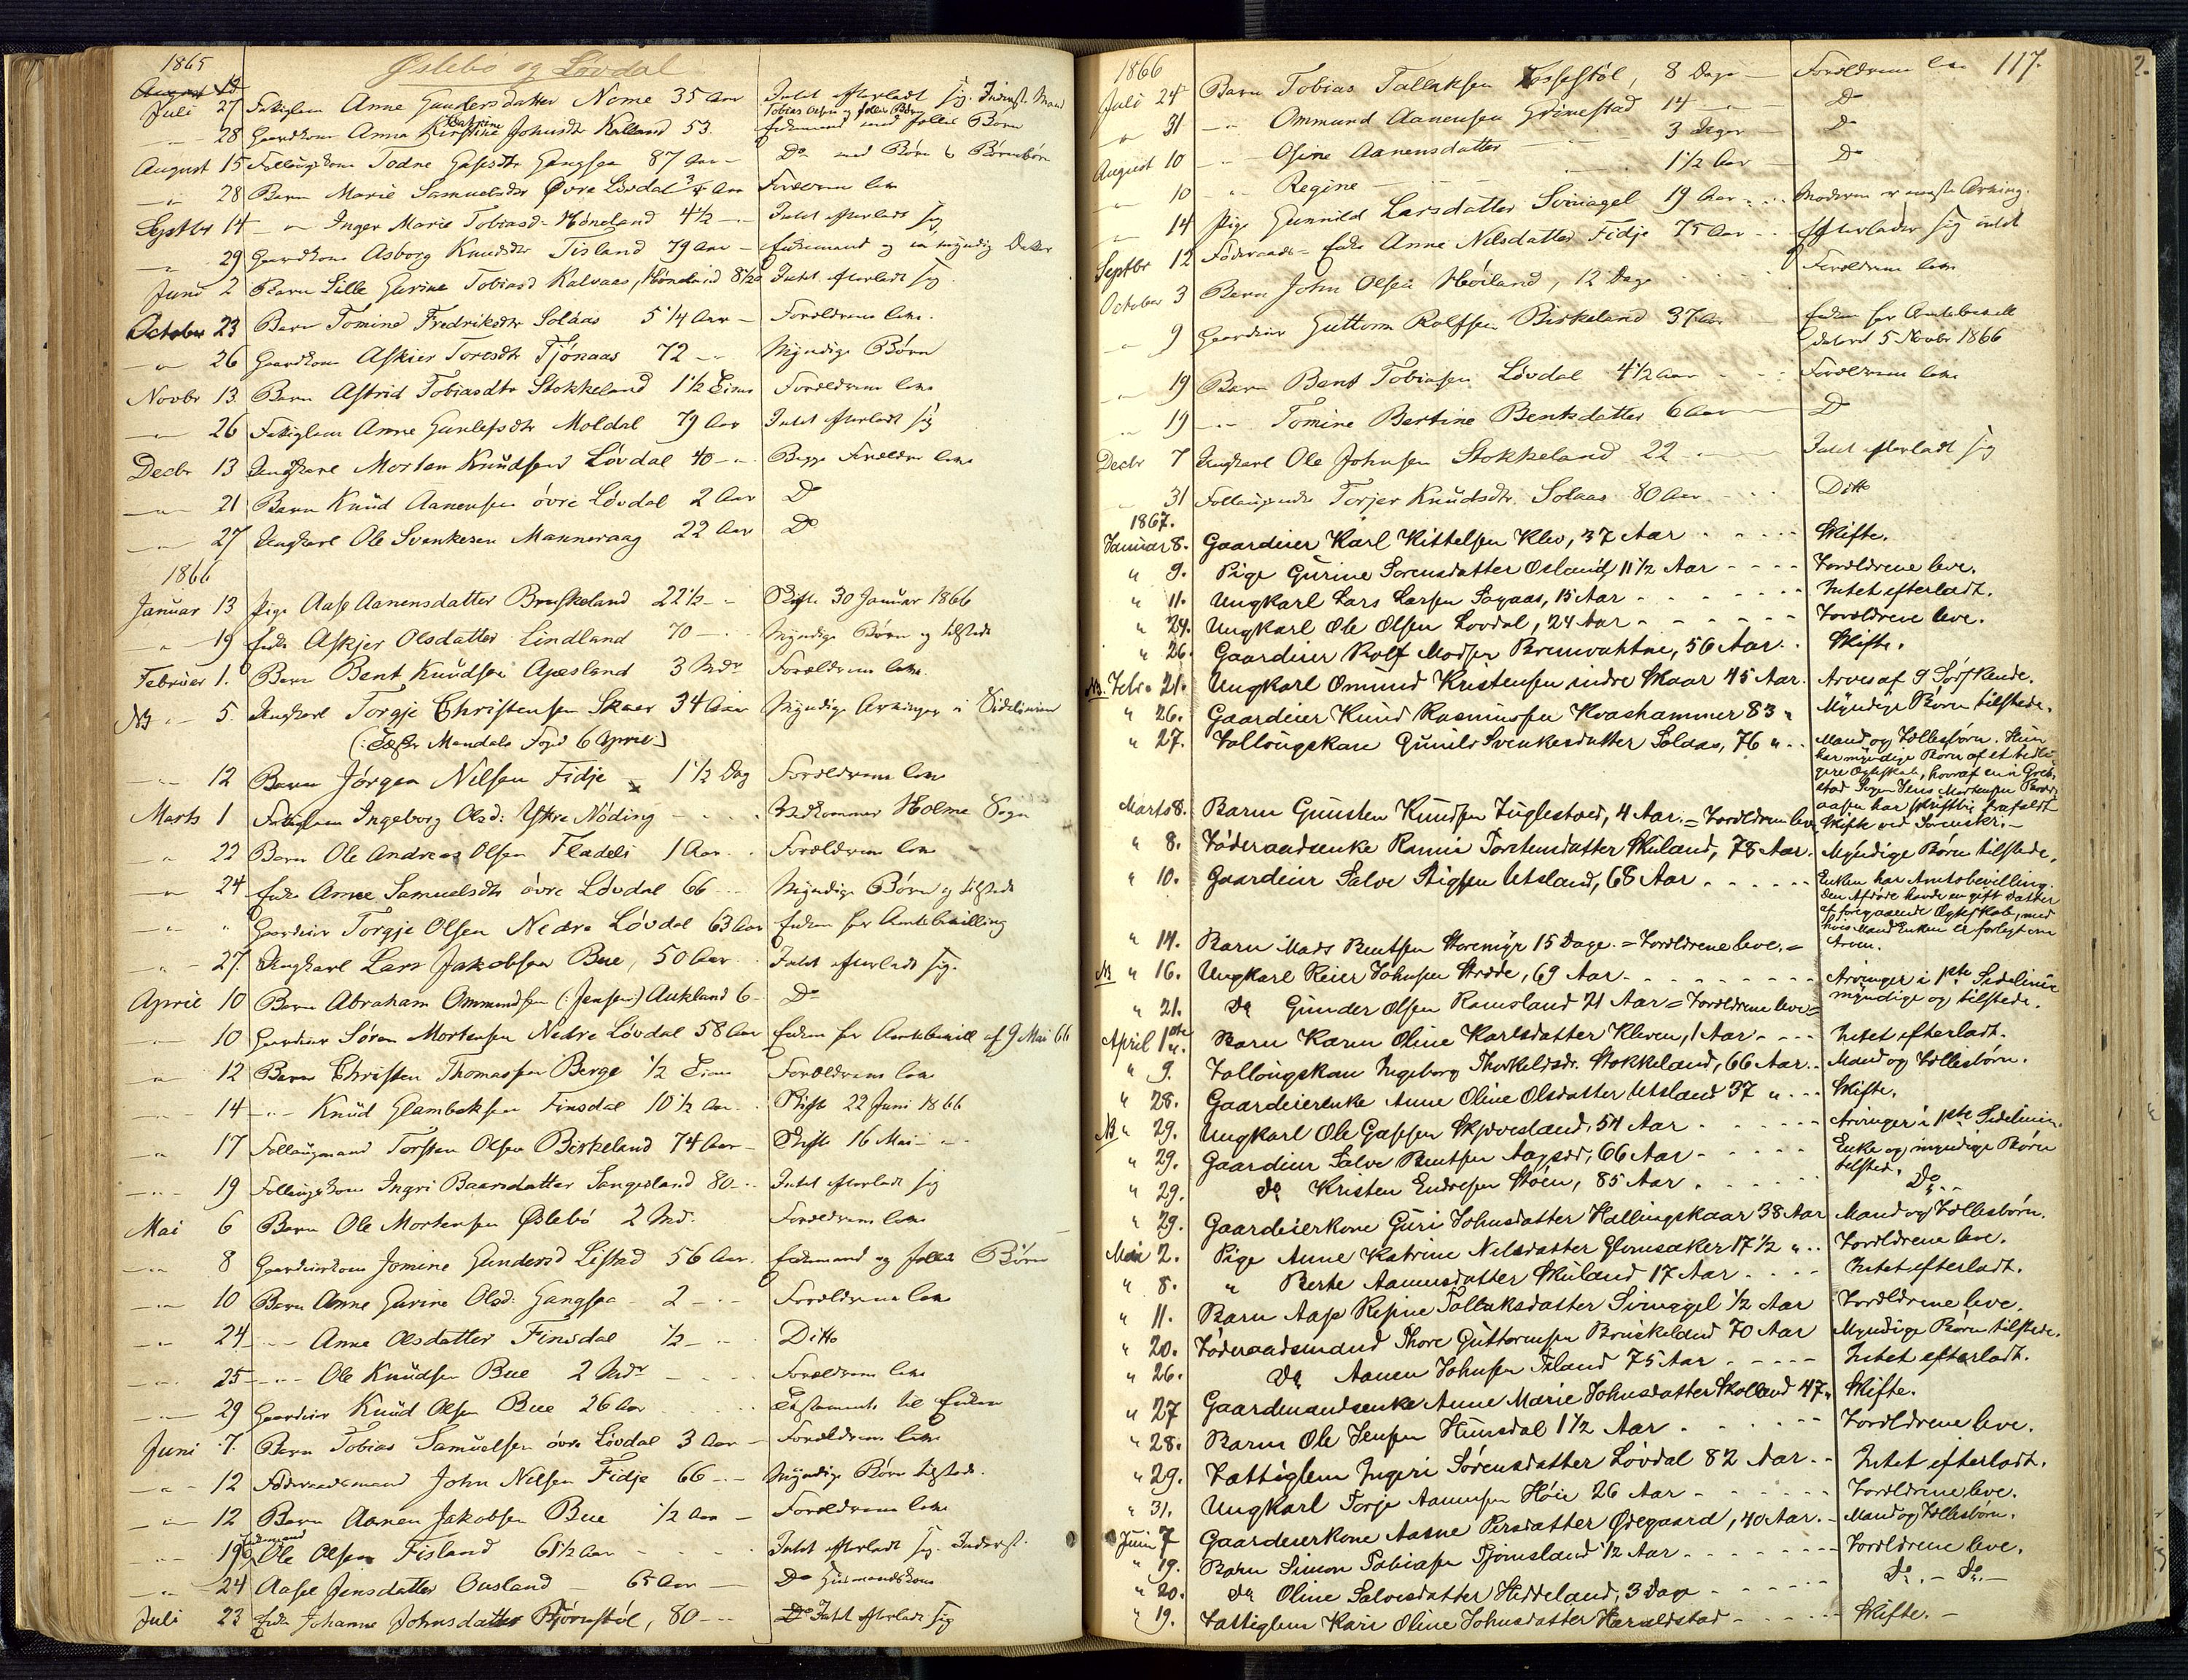 1865
Øslebö og Lövdal
Juli 27 Fatiglem Anne Gundersdatter Nome 35 Aar Intet efterladt sig. Inderst. Mand
Tobias Olsen og fælles Børn
Cathrine
" 28 Gaardkone Anna Kirstine Johnsdtr Kalland 53. Enkemand med fælles Børn
August 15 Follaugskone Todne Gasesdtr Gangsaa 87 Aar - Do med Børn & Børnebörn
" 28 Barn Marie Samuelsdtr Øvre Lövdal 3/4 Aar Forældrene leve
Septbr 14 - " Inger Marie Tobiasd. Höneland 4 1/2 - Intet efterladt sig
" 29 Gaardkone Asborg Knudsdtr Tisland 79 Aar - Enkemand og en myndig Datter
Juni 2 Barn Lille Gurine Tobiasd Kalvaas, Höneland 8 1/2 Intet efterladt sig.
October 23 Barn Tomine Fredriksdtr Solaas 5 1/4 Aar - Forældrene leve.
" 26 Gaardkone Askier Toresdtr Tjönaas 72 - " Myndige Børn
Novbr 13. Barn Astrid Tobiasdtr Stokkeland 1 1/2 Time Forældrene leve
" 26 Fatiglem Anne Gunlefsdtr Moldal 79 Aar Intet efterladt sig
Decbr 13 Ungkarl Morten Knudsen Lövdal 40 - " Begge Forældre leve
" 21 Barn Knud Aanensen övre Lövdal 2 Aar Do
" 27 Ungkarl Ole Svenkesen Manneraag 22 Aar Do
1866
Januar 13 Pige Aase Aanensdatter Bruskeland 22 1/2 - Skifte 30 Januar 1866
" 19 Enke Askjer Olsdatter Lindland 70 - Myndige Børn og tilstede
Februar 1. Barn Bent Knudsen Agesland 3 Mdr Forældrene leve.
NB " 5. Ungkarl Torgje Christensen Skaar 34 Aar Myndige Arvinger i Sidelinien
Mandals Foged 6 April)
" 12 Barn Jørgen Nilsen Fidje 1 1/2 Dag Forældrene leve
Marts 1 Fatiglem Ingeborg Olsd: Ytre Nöding - Vedkommer Holme Sogn
" 22 Barn Ole Andreas Olsen Fladeli 1 Aar Forældrene leve
" 24 Enke Anne Samuelsdtr övre Lövdal 66 - Myndige Børn og tilstede
" " Gaardeier Torgje Olsen Nedre Lövdal 63 Aar Enken har Amtsbevilling
" 27. Ungkarl Lars Jakobsen Bue, 50 Aar Intet efterladt sig.
April 10 Barn Abraham Ommundsen (: Jensen:) Aukland 6 - Do
" 10 Gaardeier Søren Mortensen Nedre Lövdal 58 Aar Enken har Amtsbevill af 9 Mai 66
" 12 Barn Christen Thomassen Berge 1/2 Time Forældrene leve
" 14 - " Knud Glambeksen Finsdal 10 1/2 Aar Skifte 22 Juni 1866
" 17 Follaugsmand Torsten Olsen Birkeland 74 Aar - Skifte 16 Mai - "
" 19 Follaugskone Ingri Baarsdatter Sangesland 80 - Intet efterladt sig
Mai 6 Barn Ole Mortensen Øslebö 2 Md. Forældrene leve
" 8 Gaardeierkone Jomine Gundersd Listad 56 Aar. Enkemand og fælles Børn
" 10 Barn Anne Gurine Olsd: Gangsaa 2 - Forældrene leve
" 24 - " Anne Olsdatter Finsdal 1/2 - Ditto
" 25 - " Ole Knudsen Bue 2 Mdr Forældrene leve
" 29 Gaardeier Knud Olsen Bue 26 Aar Testamente til Enken
Juni 7. Barn Tobias Samuelsen övre Lövdal 3 Aar - Forældrene leve
" 12 Föderaadsmand John Nilsen Fidje 66 - Myndige Børn tilstede.
" 12 Barn Aanen Jakobsen Bue 1/2 Aar - Forældrene leve
" 19 Ole Olsen Fisland 61 1/2 Aar Intet efterladt sig. Inderst.
" 24 Aase Jensdatter Ousland - 65 Aar - Do Huusmandskone
Juli 23 Enke Johanne Johnsdatter Bjørnstöl, 80 - Intet efterladt sig
117.
1866
Juli 24 Barn Tobias Tallaksen Fossestöl, 8 Dage - Forældrene leve
" 31 - " Ommund Aanensen Grimestad 14 - Do
August 10 - " Osine Aanensdatter - 3 Dager - Do
" 10 - " Regine - 1 1/2 Aar Do
" 14 Pige Gunnild Larsdatter Svinagel 19 Aar - Moderen er eneste Arving.
Septbr 12 Föderaads-Enke Anne Nilsdatter Fidje 75 Aar - Efterlader sig intet
October 3 Barn John Olsen Höiland, 12 Dage Forældrene leve
" 9 Gaardeier Guttorm Rolfsen Birkeland 37 Aar Enken har Amtsbevill
dateret 5 Novbr 1866
" 19 Barn Bent Tobiasen Lövdal 4 1/2 Aar - Forældrene leve
" 19 - " Tomine Bertine Bentsdatter 6 Aar - Do
Decbr 7 Ungkarl Ole Johnsen Stokkeland 22 - Intet efterladt sig
" 31 Follaugsenke Torjer Knudsdtr. Solaas 80 Aar - Ditto
1867.
Januar 8. Gaardeier Karl Kittelsen Klev, 37 Aar - Skifte.
" 9. Pige Gurine Sorensdatter Osland, 11 1/2 Aar - Forældrene leve.
" 11. Ungkarl Lars Larsen Sagaas, 15 Aar - Intet efterladt.
" 24. Ungkarl Ole Olsen Lovdal, 24 Aar - Forældrene leve.
" 26. Gaardeier Rolf Madsen Brunvahtne, 56 Aar. Skifte.
NB. Febr. 21. Ungkarl Omund Kristensen indre Skaar 45 Aar. Arves af 9 Søskende.
" 26. Gaardeier Knud Rasmussen Kvashammer 83 " Myndige Børn tilstede.
" 27. Follougskone Gunild Svenkesdatter Solaas, 76 " Mand og Fællesbørn. Hun
har myndige Børn af et tidli-
gere Ægteskab, hvoraf en i Greb-
stad Sogn Jens Mortensen
aasen har skriftlig
Marts 8. Barn Gunsten Knudsen Fuglestved, 4 Aar. = Forældrene leve Skifte ved Sorenskr. -
" 8. Föderaadsenke Rannei Torstensdatter Skuland, 78 Aar. Myndige Børn tilstede.
" 10. Gaardeier Salve Stigsen Udsland, 68 Aar - Enken har Amtsbevilling.
Den Afdøde havde en gift Datter
af foregaaende Ægteskab, med
hvis Mand Enken er forligt om
" 14. Barn Mads Bentsen Storemyr 15 Dage. = Forældrene leve. = Arven.
NB " 16. Ungkarl Reier Johnsen Stödde, 69 Aar - Arvinger i 1ste Sidelinie
" 21. Do Gunder Olsen Ramsland 21 Aar = Forældrene leve = myndige og tilstede.
April 1ste Barn Karen Oline Karlsdatter Kleven, 1 Aar - Intet efterladt.
" 9. Follougskone Ingeborg Thorkeldsdr. Stokkeland, 66 Aar. Mand og Fællesbørn.
" 28. Gaardeierenke Anne Oline Olsdatter Udsland 37 " Skifte.
NB " 29. Ungkarl Ole Gassen Skjævesland, 54 Aar - Arvinger i 1ste Sidelinie.
" 29. Gaardeier Salve Bentsen Aagsed, 66 Aar - Enke og myndige Børn
tilsted.
" 29. do Kristen Endresen Stöen, 85 Aar. Do. -
" 29. Gaardeierkone Guri Johnsdatter Hallingskaar 38 Aar Mand og Fællesbørn.
Mai 2. Pige Anne Katrine Nilsdatter Glomsaker 17 1/2 " Forældrene leve.
" 8. " Berte Aanensdatter Skuland 17 Aar - Intet efterladt.
" 11. Barn Aase Regine Tallaksdatter Svinaggel 1/2 Aar Forældrene leve.
" 20. Föderaadsmand Thore Guttormsen Bruskeland 70 Aar Myndige Børn tilstede.
" 26. Do Aanen Johnsen Tiland 75 Aar - Intet efterladt.
" 27 Gaardmandsenke Anne Marie Johnsdatter Skolland 47 " Skifte.
" 28. Barn Ole Jensen Hunsdal 1 1/2 Aar - Forældrene leve.
" 29. Fattiglem Ingeri Sörensdatter Lövdal 82 Aar. - Intet efterladt.
" 31. Ungkarl Torje Aanensen Höie 26 Aar - Forældrene leve.
Juni 7 Gaardeierkone Aasne Persdatter Ødegaard, 40 Aar. - Mand og Fællesbørn.
" 19. Barn Simon Tobiasen Tjomsland 1/2 Aar - Forældrene leve.
" 20. do Oline Salvesdatter Heddeland, 3 Dage - Do. - Do. -
" 19. Fattiglem Kari Oline Johnsdatter Haraldstad - Skifte. -